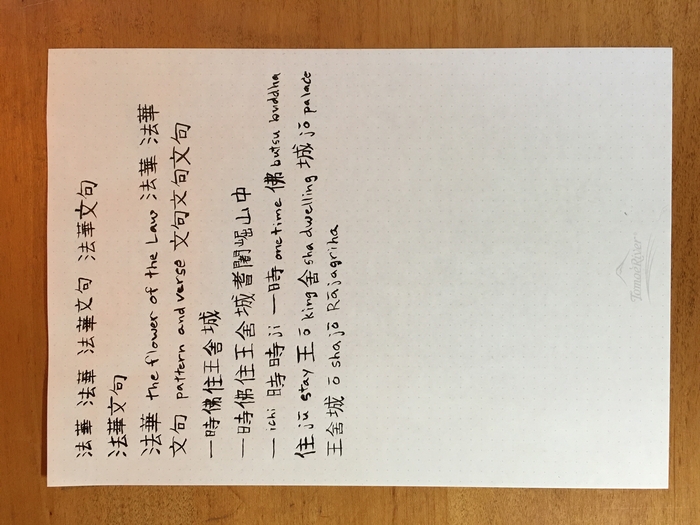 法華 法華 法華文句 法華文句
法華文句
法華 the flower of the Law 法華 法華
文句 pattern and verse 文句文句文句
一時佛住王舍城
一時佛住王舍城耆闍崛山中
一 ichi 時 時 ji 一時 one time 佛 butsu buddha
住 jū stay 王 ō king 舍 sha dwelling 城 jō palace
王舍城 ō sha jō Rājagriha
Tomoe River